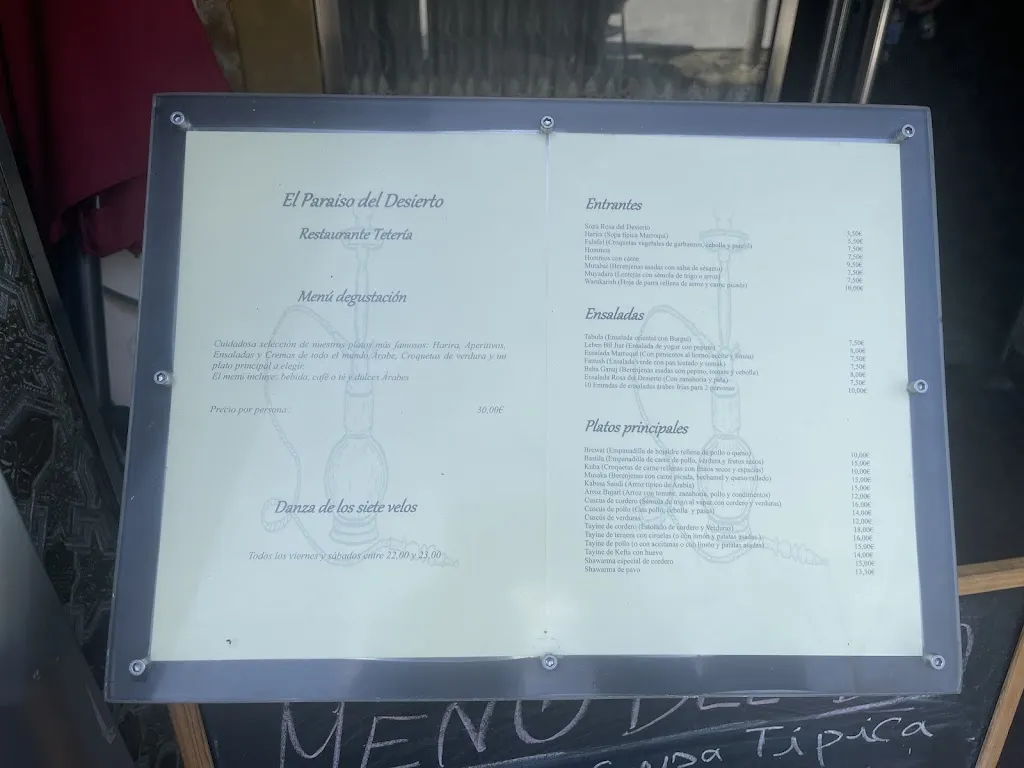 El Paraiso del Desierto
Restaurante Tetería
Menú degustación
Cuidadosa selección de nuestros platos más famosos: Harira, Aperitivos,
Ensaladas y Cremas de todo el mundo Árabe, Croquetas de verdura y un
plato principal a elegir.
El menú incluye: bebida, café o té y dulces Árabes
Precio por persona. 30,00€
Danza de los siete velos
Todos los viernes y sábados entre 22,00 y 23,00
Entrantes
Sopa Rosa del Desierto 5,50€
Harira (Sopa típica Marroquí) 5,50€
Falafel (Croquetas vegetales de garbanzos, cebolla y perejil) 7,50€
Hommos 7,50€
Hommos con carne 9,50€
Mutabal (Berenjenas asadas con salsa de sésamo) 7,50€
Muyadara (Lentejas con sémola de trigo o arroz) 7,50€
Warakarish (Hoja de parra rellena de arroz y carne picada) 10,00€
Ensaladas
Tabula (Ensalada oriental con Burgul) 7,50€
Leben Bil Jiar (Ensalada de yogur con pepino) 8,00€
Ensalada Marroquí (Con pimientos al horno, aceite y limón) 7,50€
Fatoush (Ensalada verde con pan tostado y sumak) 7,50€
Baba Ganuj (Berenjenas asadas con pepino, tomate y cebolla) 8,00€
Ensalada Rosa del Desierto (Con zanahoria y piña) 7,50€
10 Entradas de ensaladas árabes frías para 2 personas 10,00€
Platos principales
Brewat (Empanadilla de hojaldre rellena de pollo o queso) 10,00€
Bastila (Empanadilla de carne de pollo, verdura y frutos secos) 15,00€
Kuba (Croquetas de carne rellenas con frutos secos y especias) 10,00€
Musaka (Berenjenas con carne picada, bechamel y queso rallado) 15,00€
Kabasa Saudi (Arroz típico de Arabia) 15,00€
Arroz Bujari (Arroz con tomate, zanahoria, pollo y condimentos) 12,00€
Cuscus de cordero (Sémola de trigo al vapor con cordero y verduras) 16,00€
Cuscus de pollo (Con pollo, cebolla y pasas) 14,00€
Cuscus de verduras 12,00€
Tayine de cordero (Estofado de cordero y Verduras) 18,00€
Tayine de ternera con ciruelas (o con limón y patatas asadas) 16,00€
Tayine de pollo (o con aceitunas o con limón y patatas asadas) 15,00€
Tayine de Kefta con huevo 14,00€
Shawarma especial de cordero 15,00€
Shawarma de pavo 13,50€
MENÚ DEL
Sopa Típica